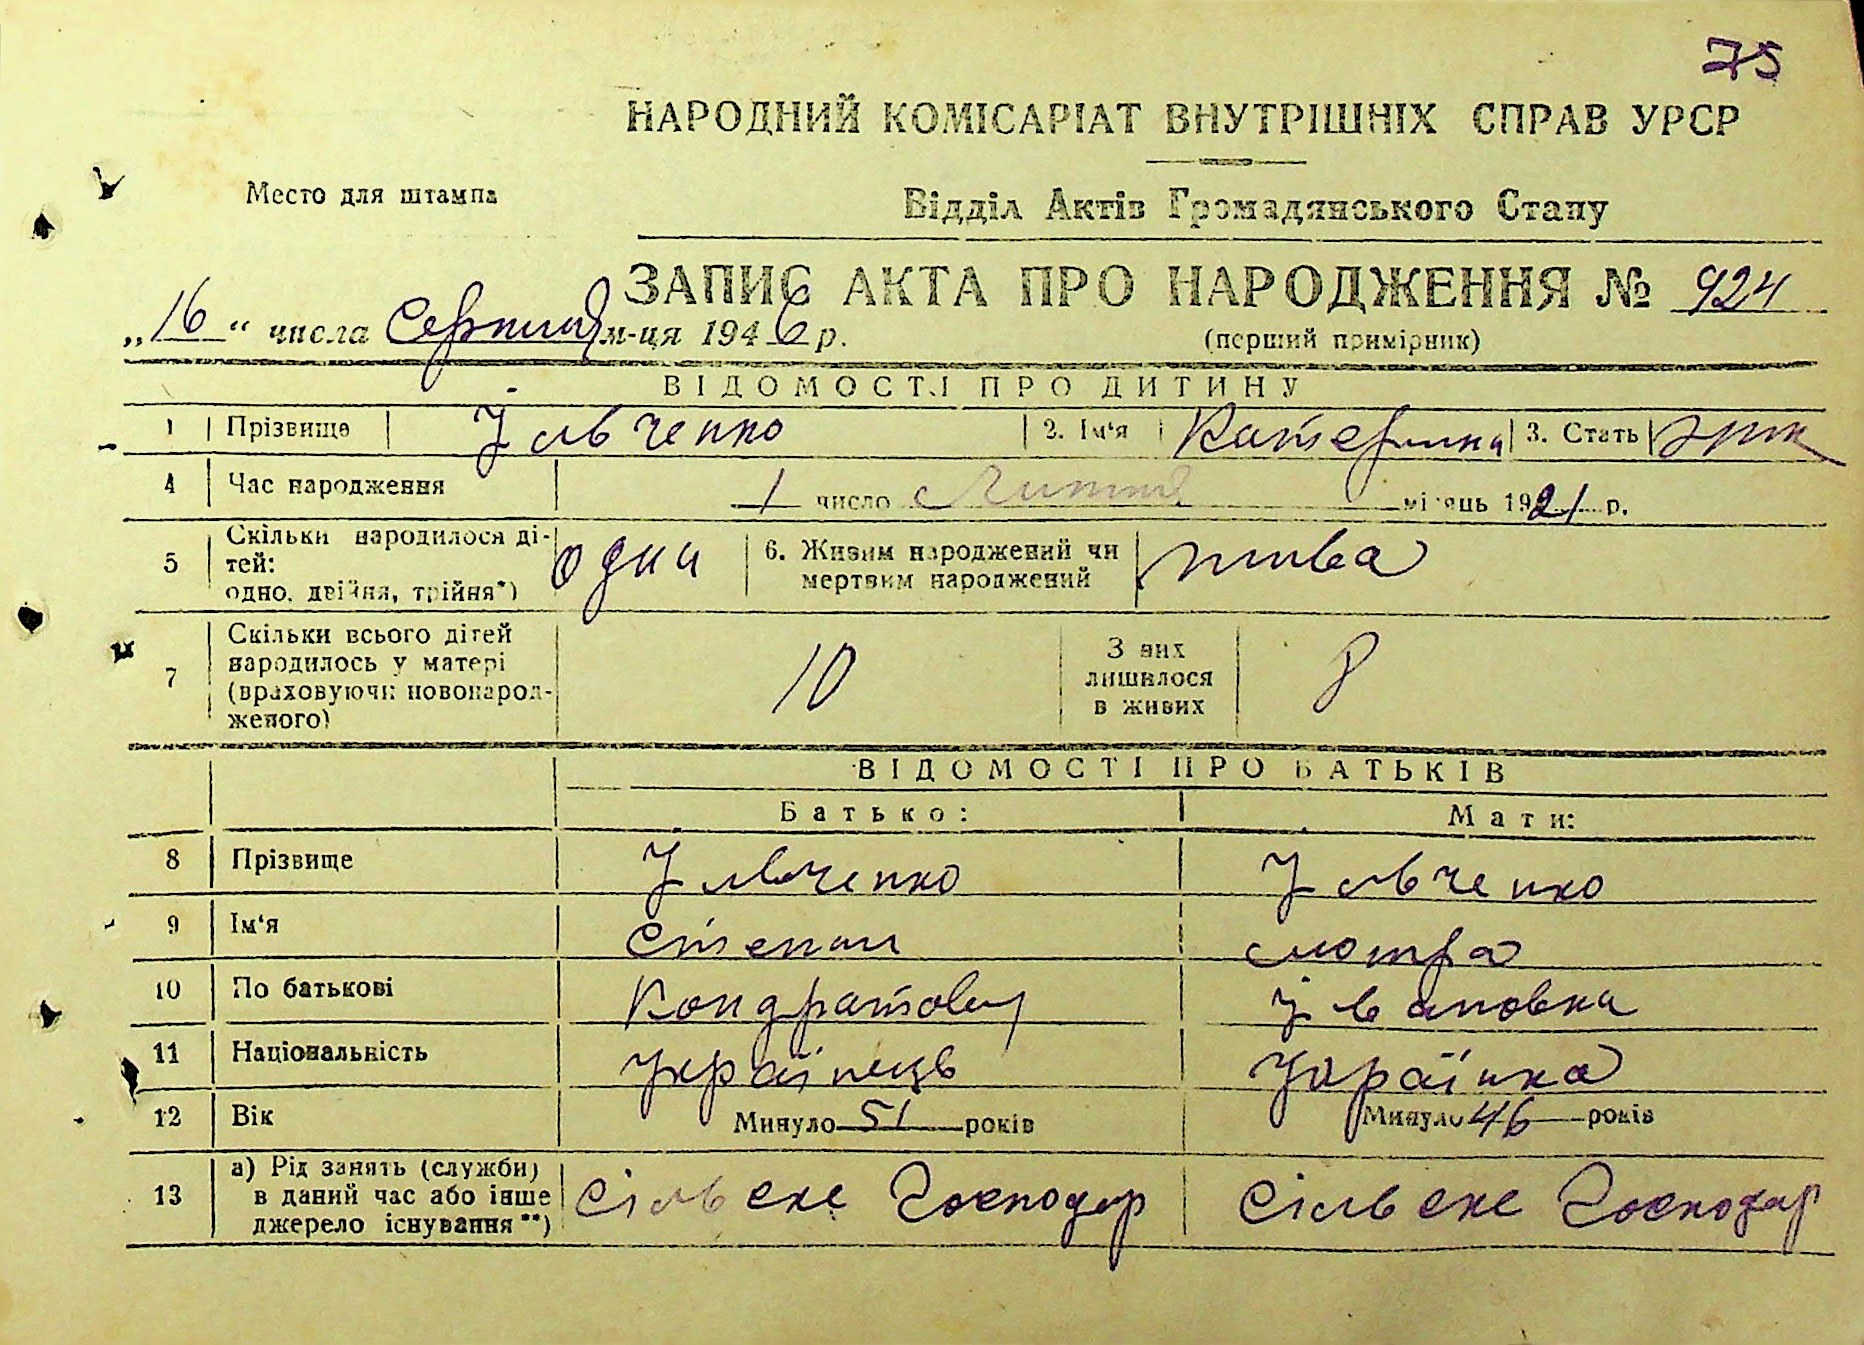 75
НАРОДНИЙ КОМІСАРІАТ ВНУТРІШНІХ СПРАВ УРСР
Место для штампа
Відділ Актів Громадянського Стану
ЗАПИС АКТА ПРО НАРОДЖЕННЯ № 924
„16“ числа Серпня м-ця 1946 р.
(перший примірник)
ВІДОМОСТІ ПРО ДИТИНУ
1 Прізвище Ільченко 2. Ім‘я Катерина 3. Стать жін
4 Час народження 1 число Липня місяць 1921 р.
5 Скільки народилося ді-
тей:
одно, двійня, трійня*) одна
6. Живим народжений чи
мертвим народжений жива
7 Скільки всього дітей
народилось у матері
(враховуючи новонарод-
женого) 10
З них
лишилося
в живих 8
ВІДОМОСТІ ПРО БАТЬКІВ
Батько: Мати:
8 Прізвище Ільченко Ільченко
9 Ім‘я Степан Мотра
10 По батькові Кондратович Івановна
11 Національність Українець Українка
12 Вік Минуло 51 років Минуло 46 років
13 а) Рід занять (служби)
в даний час або інше
джерело існування**) Сільске Господар Сільске Господар